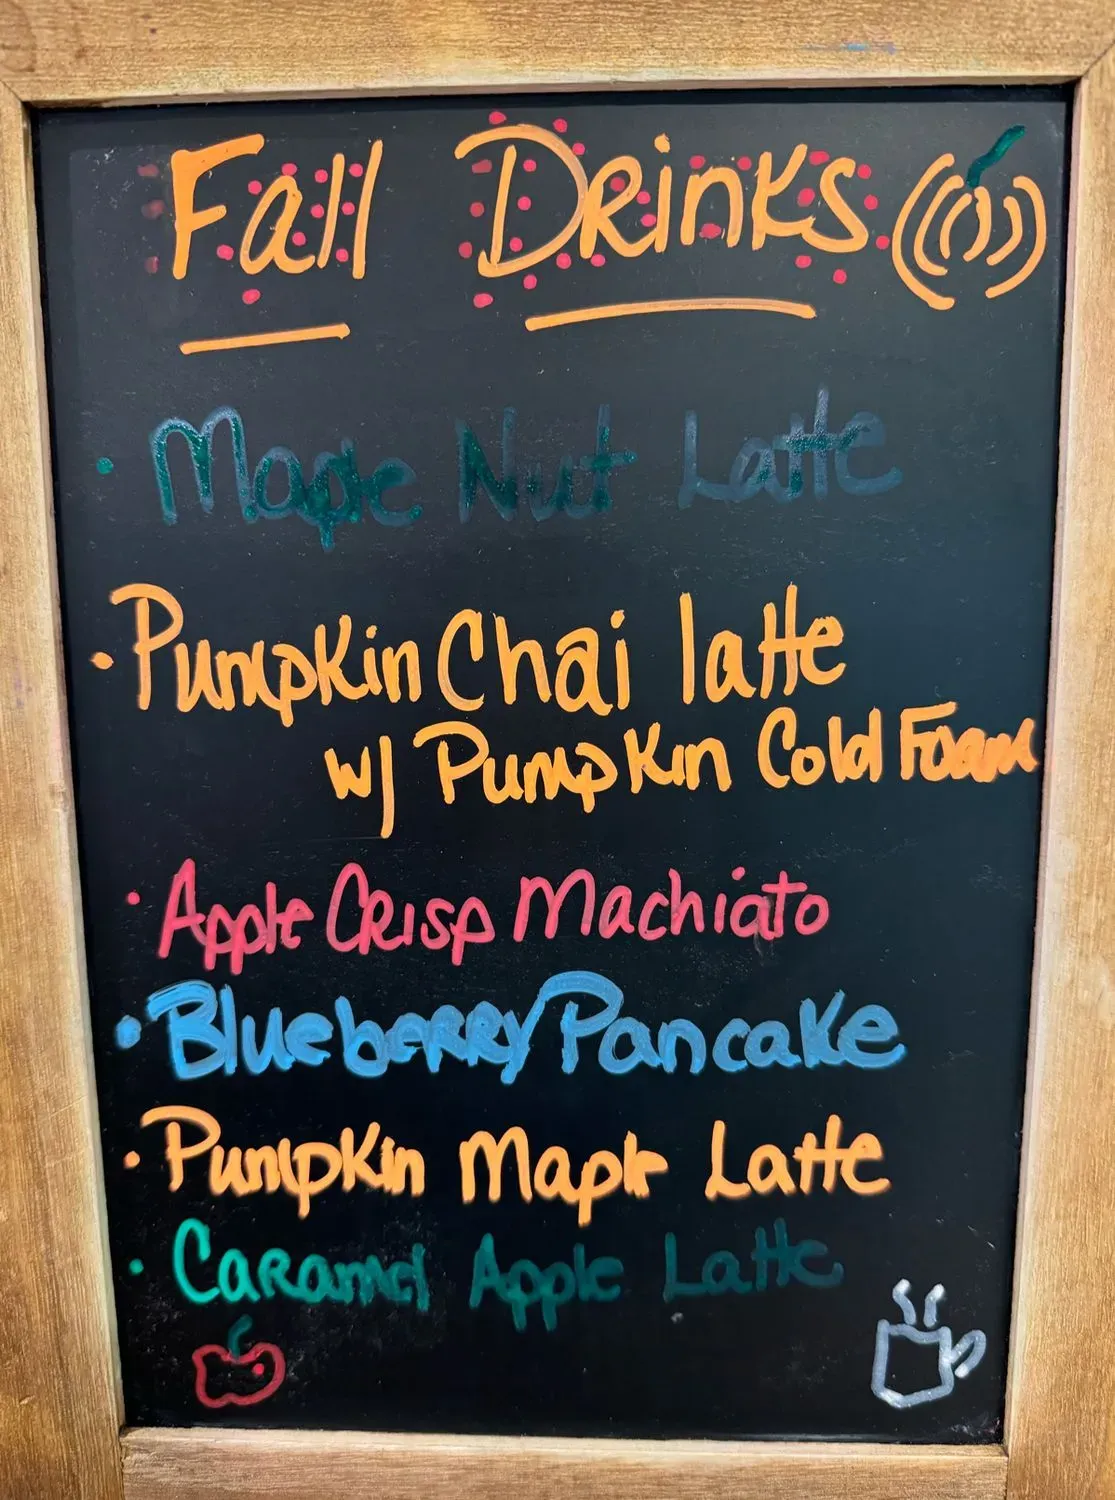 Fall Drinks
• Maple Nut Latte
• Pumpkin Chai latte
w/ Pumpkin Cold Foam
• Apple Crisp Machiato
• Blueberry Pancake
• Pumpkin Maple Latte
• Caramel Apple Latte